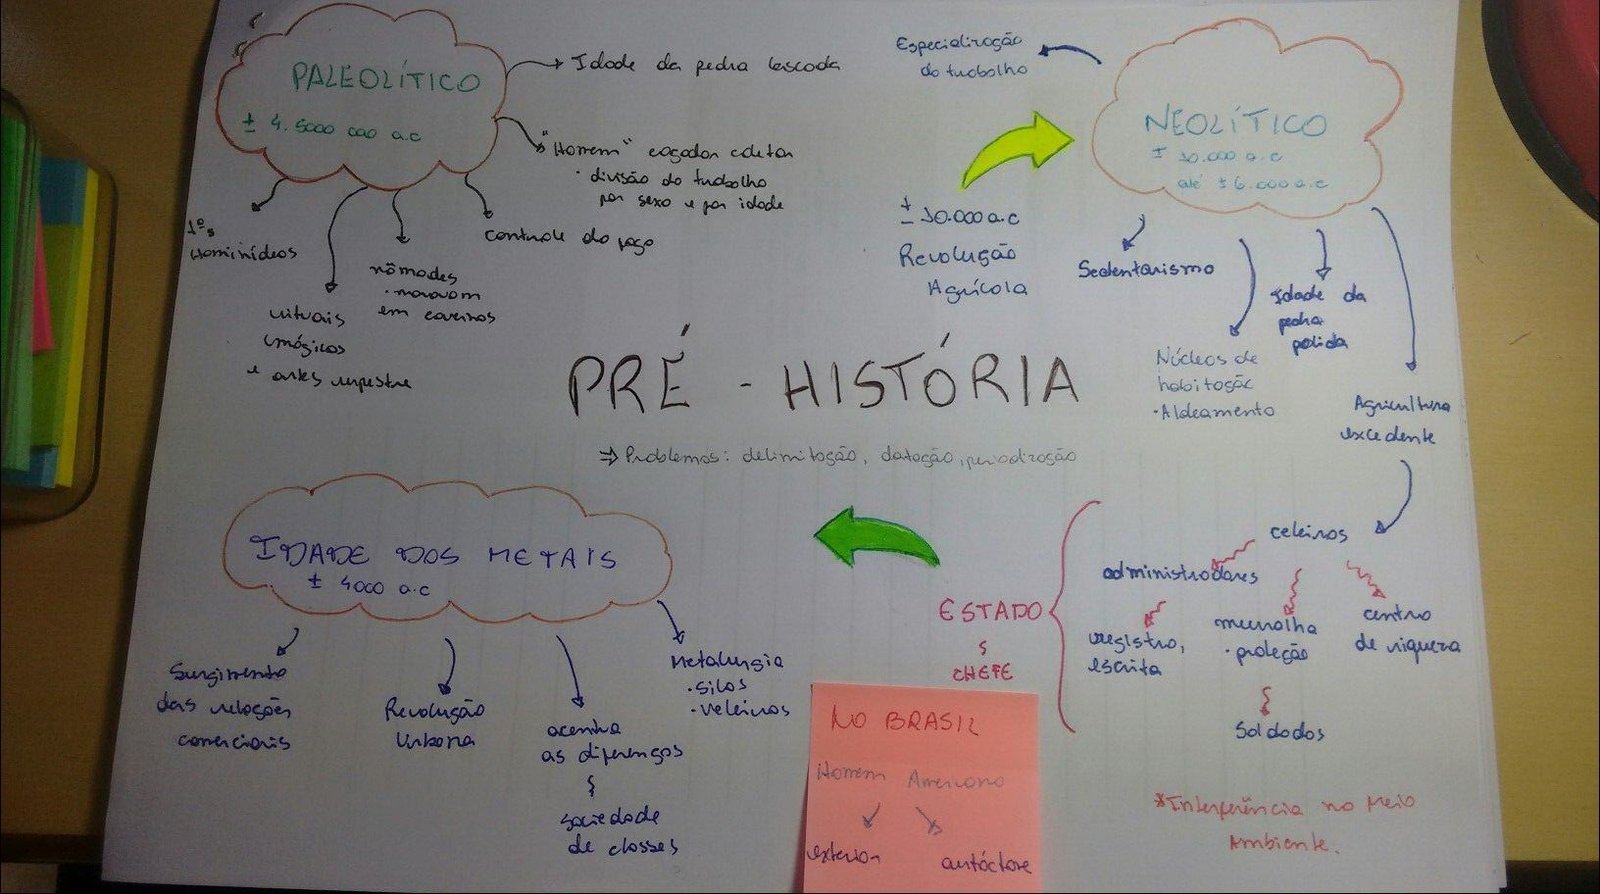 PALEOLÍTICO
± 4.5000 000 a.c
Idade da pedra lascada
"Homem" caçador coletor
· divisão do trabalho
por sexo e por idade
controle do fogo
1ºs
Hominídeos
nômades
· moravam
em cavernas
rituais
mágicos
e artes rupestre
Especialização
do trabalho
NEOLÍTICO
± 10.000 a.c
até ± 6.000 a.c
± 10.000 a.c
Revolução
Agrícola
Sedentarismo
Núcleos de
habitação
· Aldeamento
Idade da
pedra
polida
Agricultura
excedente
PRÉ - HISTÓRIA
⇒ Problemas: delimitação, datação, periodização
celeiros
administradores
registro,
escrita
muralha
· proteção
Soldados
centro
de riqueza
ESTADO
CHEFE
IDADE DOS METAIS
± 4000 a.c
Surgimento
das relações
comerciais
Revolução
Urbana
acentua
as diferenças
sociedade
de classes
Metalurgia
· silos
· veleiros
NO BRASIL
Homem Americano
exterior
autóctone
*Interferência no Meio
Ambiente.